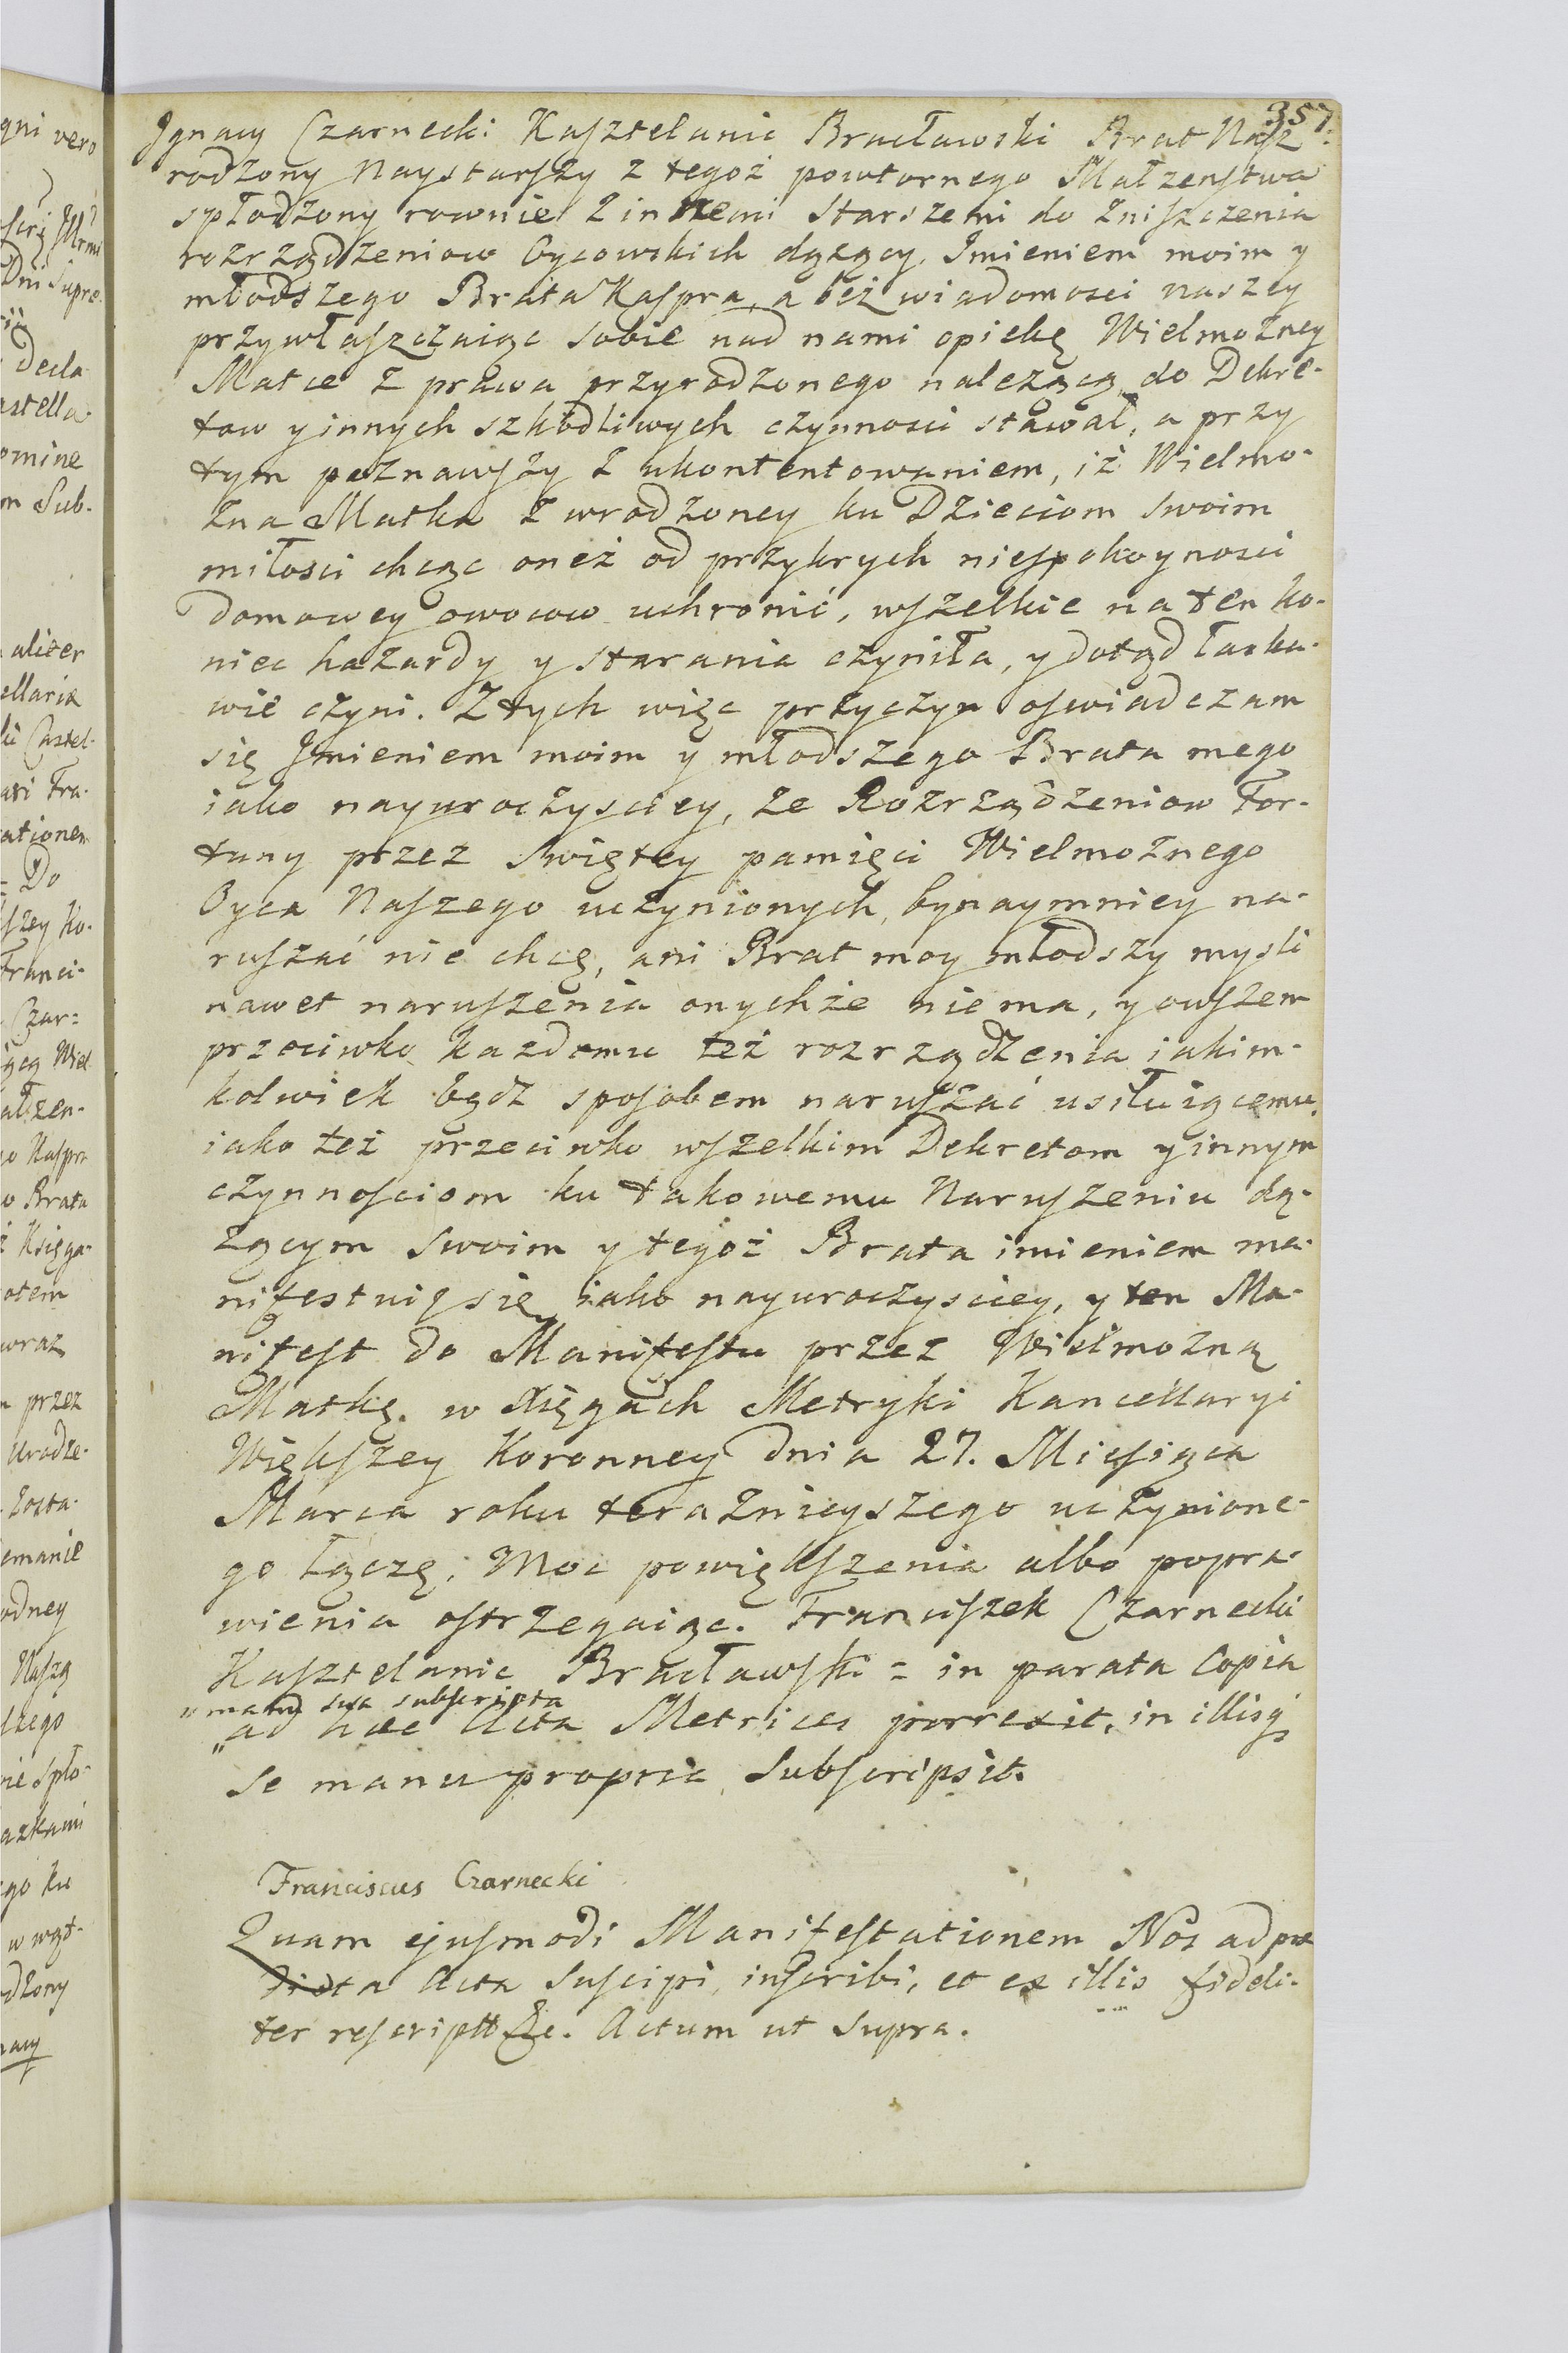 357.
Ignacy Czarnecki Kasztelanic Bracławski Brat Nasz
rodzony Naystarszy z tegoż powtornego Małzenstwa
spłodzony rownie z innemi starszemi do zniszczenia
rozrządzeniow Oycowskich dążący, Imieniem moim y
młodszego Brata Kaspra, a bez wiadomosci naszey
przywłaszczaiąc sobie nad nami opiekę Wielmozney
Matce z prawa przyrodzonego nalezącą, do Dekre-
tow y innych szkodliwych czynnosci stawał, a przy
tym poznawszy z ukontentowaniem, iż Wielmo-
zna Matka z wrodzoney ku Dzieciom swoim
miłosci chcąc oneż od przykrych niespokoynosci
domowey owocow uchronić, wszelkie na ten ko-
niec hazardy y starania czyniła, y dotąd łaska-
wie czyni. Z tych więc przyczyn oswiadczam
się Imieniem moim y młodszego Brata mego
iako nayuroczysciey, ze Rozrządzeniow For-
tuny przez Swiętey pamięci Wielmoznego
Oyca Naszego uczynionych, bynaymniey na-
ruszać nie chcę, ani Brat moy młodszy mysli
nawet naruszenia onychże niema, y owszem
przeciwko kazdemu też rozrządzenia iakim-
kolwiek bądz sposobem naruszać usiłuiącemu,
iako też przeciwko wszelkim Dekretom y innym
czynnosciom ku takowemu Naruszeniu dą-
zącym swoim y tegoż Brata imieniem ma-
nifestuię się iako nayuroczysciey, y ten Ma-
nifest do Manifestu przez Wielmozną
Matkę w Xięgach Metryki Kancellaryi
Większey Koronney dnia 27. Miesiąca
Marca roku teraznieyszego uczynione-
go łączę; Moc powiększenia albo popra-
wienia ostrzegaiąc. Franciszek Czarnecki
Kasztelanic Bracławski = in parata Copia
" manu sua subscripta
" ad hæc Acta Metrices porrexit, in illisq
se manu propria subscripsit.
Franciscus Czarnecki
Quam ejusmodi Manifestationem Nos ad præ
dicta Acta suscipi, inscribi, et ex illis fideli-
ter rescriptt &c. Actum ut supra.